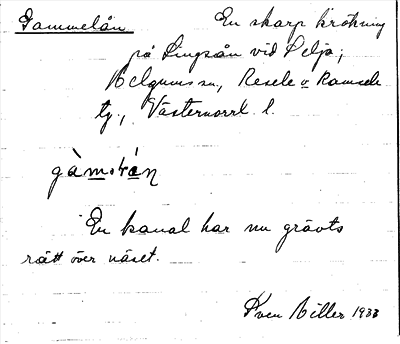 Gammelån En skarp krökning
på Lingån vid Selja;
Helgums sn, Resele o Ramsele
tg., Västernorrl. l.
En kanal har nu grävts
rätt över näset.
Sven Hiller 1933